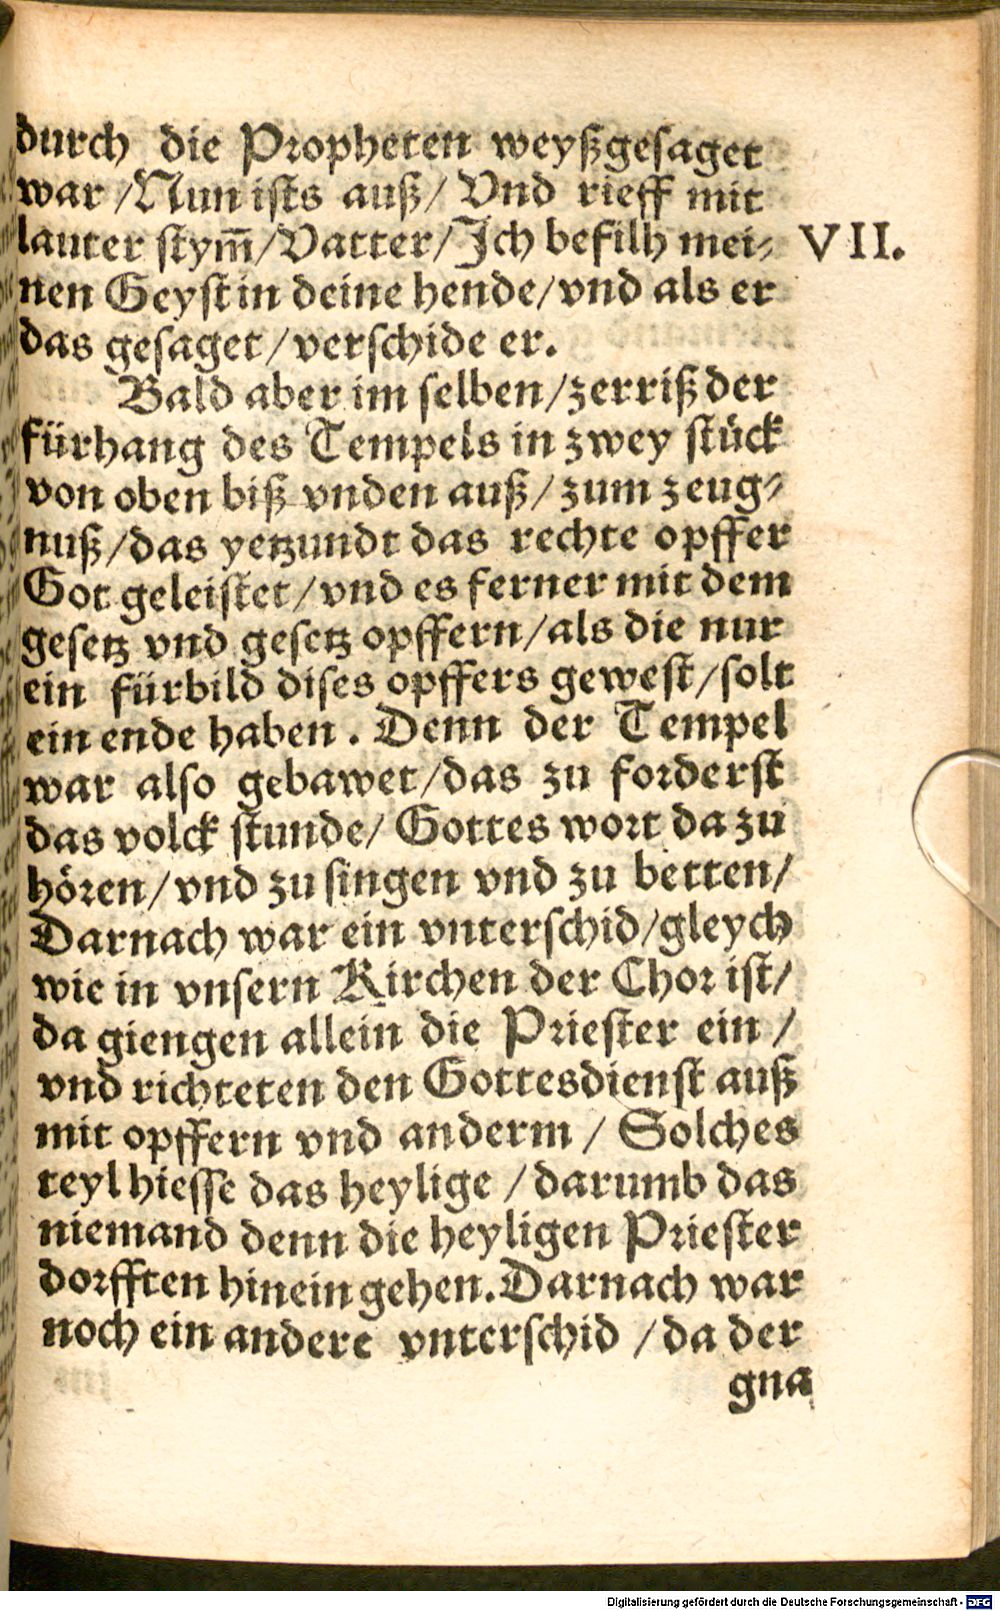 durch die Propheten weyßgesaget
war /Nun ists auß/ Vnd rieff mit
lauter stym̃/Vatter/Ich befilh mei⸗
VII.
nen Geyst in deine hende/vnd als er
das gesaget/verschide er.
Bald aber im selben/zerriß der
fürhang des Tempels in zwey stück
von oben biß vnden auß/zum zeug⸗
nuß/das yetzundt das rechte opffer
Got geleistet/vnd es ferner mit dem
gesetz vnd gesetz opffern/als die nur
ein fürbild dises opffers gewest/solt
ein ende haben. Denn der Tempel
war also gebawet/das zu forderst
das volck stunde/ Gottes wort da zu
hören/vnd zu singen vnd zu betten/
Darnach war ein vnterschid/gleych
wie in vnsern Kirchen der Chor ist/
da giengen allein die Priester ein /
vnd richteten den Gottesdienst auß
mit opffern vnd anderm / Solches
teyl hiesse das heylige /darumb das
niemand denn die heyligen Priester
dorfften hinein gehen. Darnach war
noch ein andere vnterschid /da der
gna
Digitalisierung gefördert durch die Deutsche Forschungsgemeinschaft - DFG